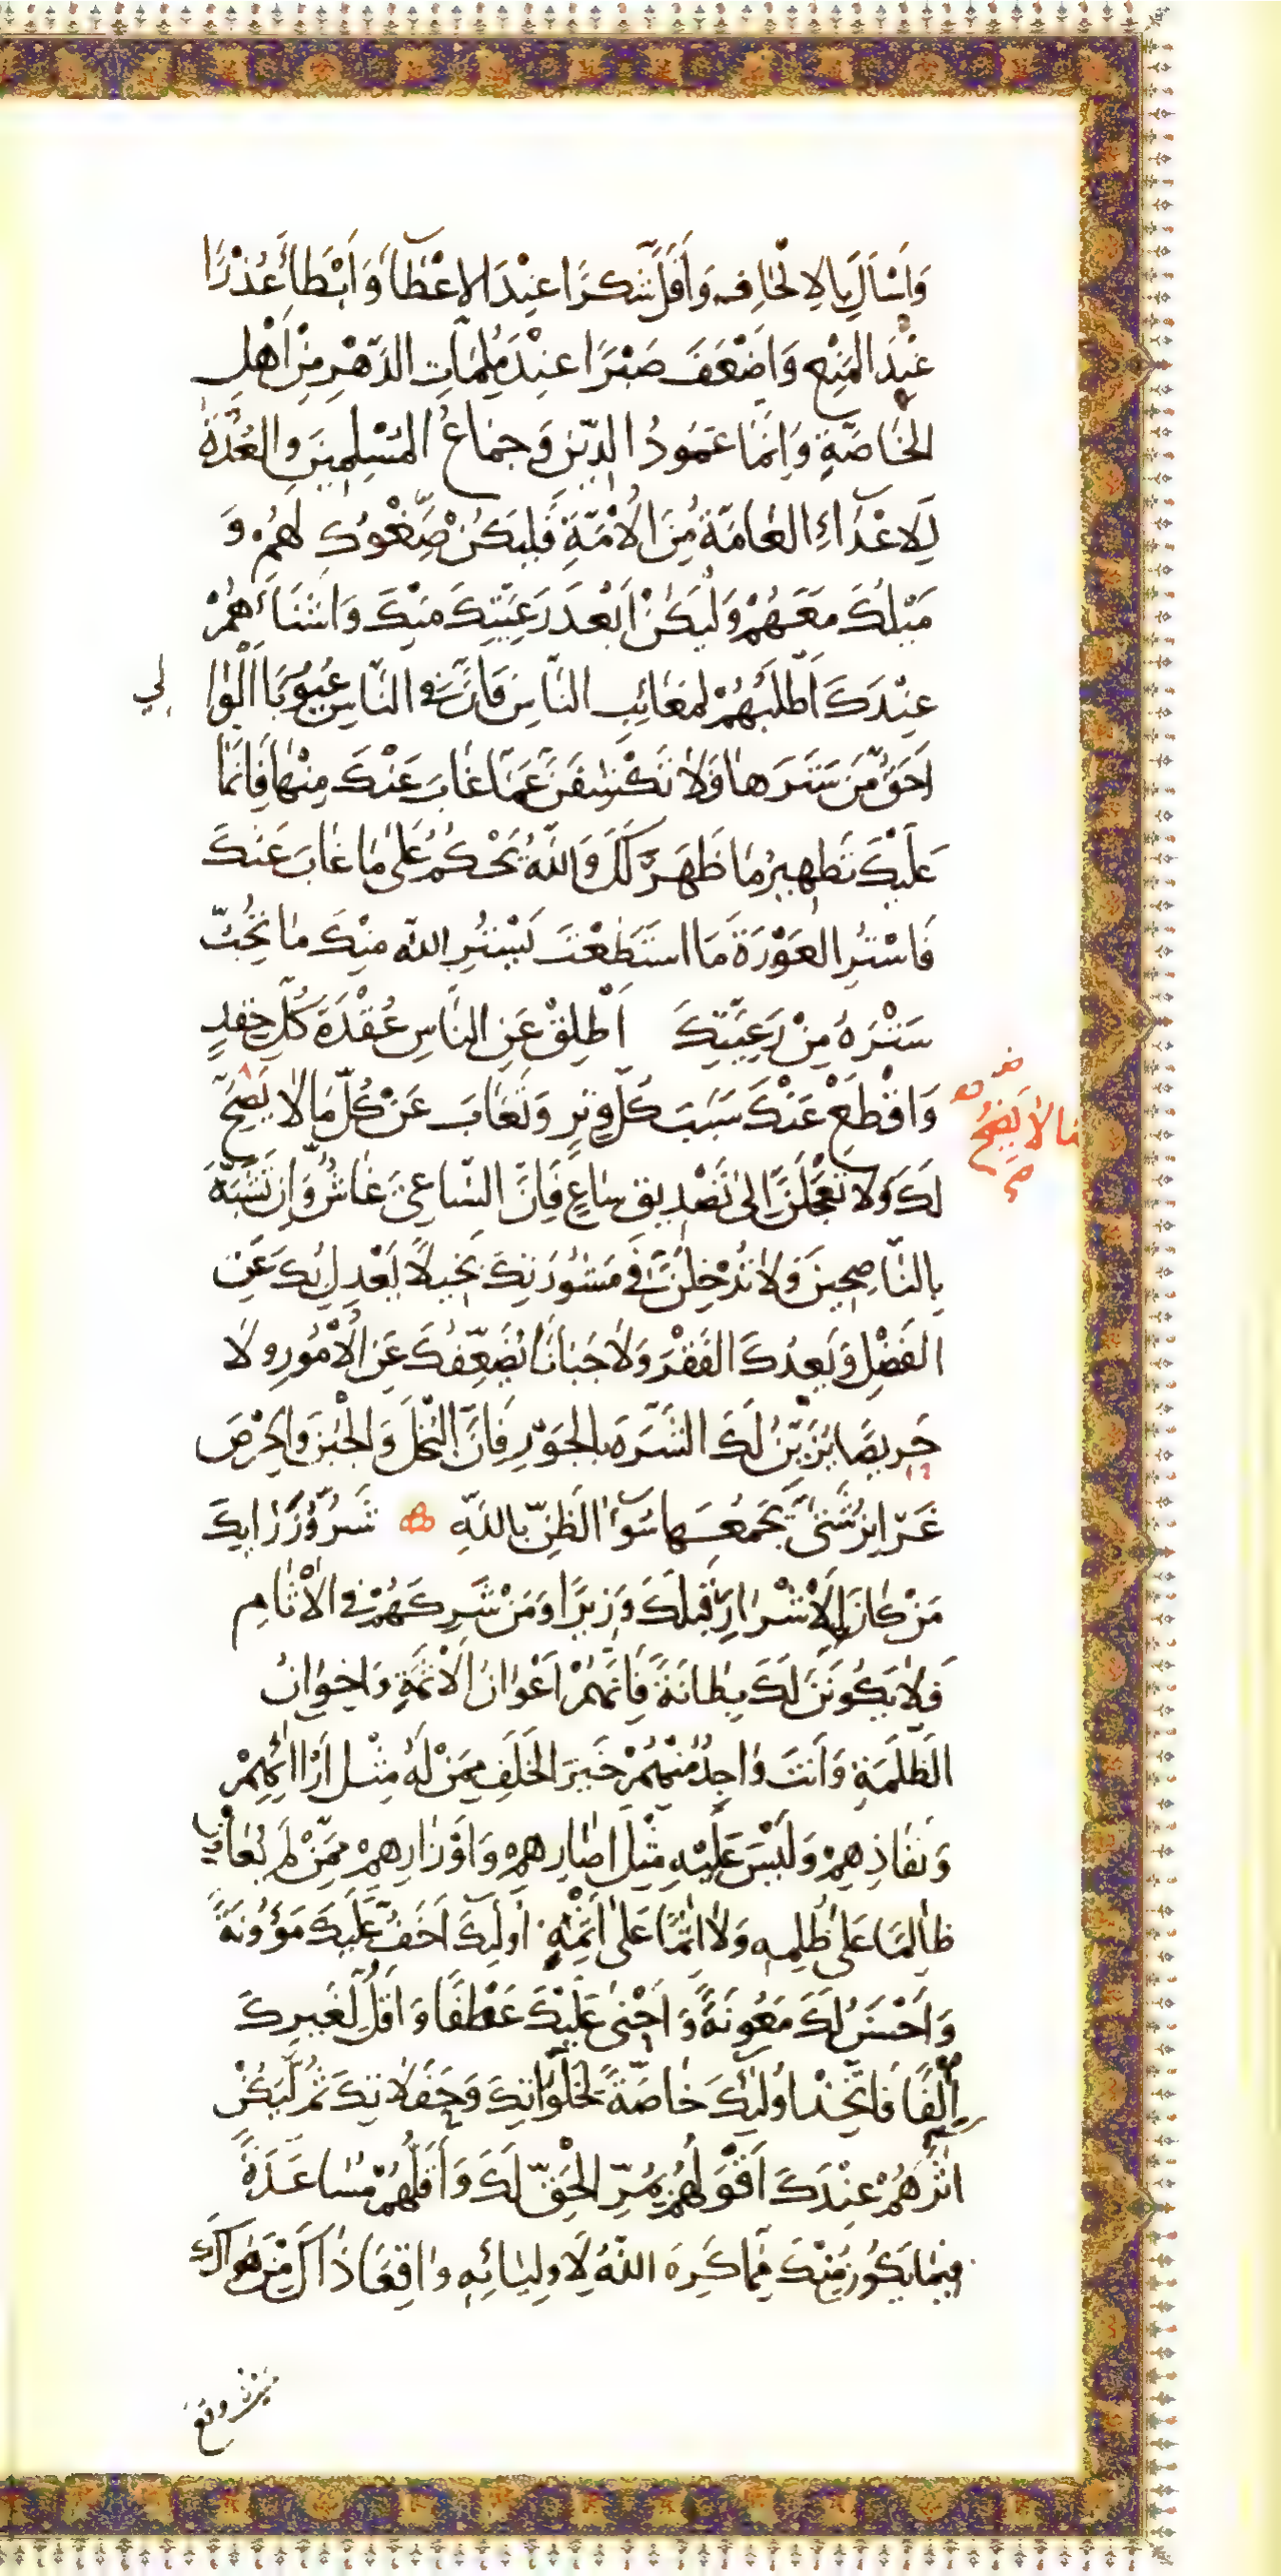 وَاَسْاَلَ بِالاِلْحَافِ وَاَقَلَّ شُكْرًا عِنْدَ الاِعْطَاءِ وَاَبْطَاَ عُذْرًا
عِنْدَ المَنْعِ وَاَضْعَفَ صَبْرًا عِنْدَ مُلِمَّاتِ الدَّهْرِ مِنْ اَهْلِ
الخَاصَّةِ وَاِنَّمَا عَمُودُ الدِّيْنِ وَجِمَاعُ المُسْلِمِينَ وَالعُدَّةُ
لِلاَعْدَاءِ العَامَّةُ مِنَ الاُمَّةِ فَلْيَكُنْ صِغْوُكَ لَهُمْ وَ
مَيْلُكَ مَعَهُمْ وَلْيَكُنْ اَبْعَدَ رَعِيَّتِكَ مِنْكَ وَاَشْنَاَهُمْ
عِنْدَكَ اَطْلَبُهُمْ لِمَعَائِبِ النَّاسِ فَاِنَّ فِى النَّاسِ عُيُوبًا اَلْوَالِي
اَحَقُّ مَنْ سَتَرَهَا وَلَا تَكْشِفَنَّ عَمَّا غَابَ عَنْكَ مِنْهَا فَاِنَّمَا
عَلَيْكَ تَطْهِيرُ مَا ظَهَرَ لَكَ وَاللّٰهُ يَحْكُمُ عَلٰى مَا غَابَ عَنْكَ
فَاسْتُرِ العَوْرَةَ مَا اسْتَطَعْتَ يَسْتُرِ اللّٰه مِنْكَ مَا تُحِبُّ
سَتْرَهُ مِنْ رَعِيَّتِكَ اَطْلِقْ عَنِ النَّاسِ عُقْدَةَ كُلِّ حِقْدٍ
وَاقْطَعْ عَنْكَ سَبَبَ كُلِّ وِتْرٍ وَتَغَابَ عَنْ كُلِّ مَا لَا يَصِحُّ
مَا لَا يَضِحُ
لَكَ وَلَا تَعْجَلَنَّ اِلٰى تَصْدِيقِ سَاعٍ فَاِنَّ السَّاعِيَ غَاشٌّ وَاِنْ تَشَبَّهَ
بِالنَّاصِحِينَ وَلَا تُدْخِلَنَّ فِى مَشُوْرَتِكَ بَخِيلًا يَعْدِلُ بِكَ عَنِ
الفَضْلِ وَيَعِدُكَ الفَقْرَ وَلَا جَبَانًا يُضَعِّفُكَ عَنِ الاُمُورِ وَلَا
حَرِيصًا يُزَيِّنُ لَكَ الشَّرَهَ بِالجَوْرِ فَاِنَّ البُخْلَ وَالجُبْنَ وَالحِرْصَ
غَرَائِزُ شَتّٰى يَجْمَعُهَا سُوْءُ الظَّنِّ بِاللّٰهِ شَرُّ وُزَرَائِكَ
مَنْ كَانَ لِلاَشْرَارِ قَبْلَكَ وَزِيرًا وَمَنْ شَرِكَهُمْ فِى الاٰثَامِ
فَلَا يَكُونَنَّ لَكَ بِطَانَةً فَاِنَّهُمْ اَعْوَانُ الاَثَمَةِ وَاِخْوَانُ
الظَّلَمَةِ وَاَنْتَ وَاجِدٌ مِنْهُمْ خَيْرَ الخَلَفِ مِمَّنْ لَهُ مِثْلُ اٰرَائِهِمْ
وَنَفَاذِهِمْ وَلَيْسَ عَلَيْهِ مِثْلُ اٰصَارِهِمْ وَاَوْزَارِهِمْ مِمَّنْ لَمْ يُعَاوِنْ
ظَالِمًا عَلٰى ظُلْمِهِ وَلَا اٰثِمًا عَلٰى اِثْمِهِ اُولٰئِكَ اَخَفُّ عَلَيْكَ مَؤُونَةً
وَاَحْسَنُ لَكَ مَعُونَةً وَاَحْنٰى عَلَيْكَ عَطْفًا وَاَقَلُّ لِغَيْرِكَ
اِلْفًا فَاتَّخِذْ اُولٰئِكَ خَاصَّةً لِخَلَوَاتِكَ وَحَفَلَاتِكَ ثُمَّ لْيَكُنْ
اٰثَرُهُمْ عِنْدَكَ اَقْوَلَهُمْ بِمُرِّ الحَقِّ لَكَ وَاَقَلَّهُمْ مُسَاعَدَةً
فِيمَا يَكُونُ مِنْكَ مِمَّا كَرِهَ اللّٰهُ لِاَوْلِيَائِهِ وَاقِعًا ذٰلِكَ مِنْ هَوَاكَ